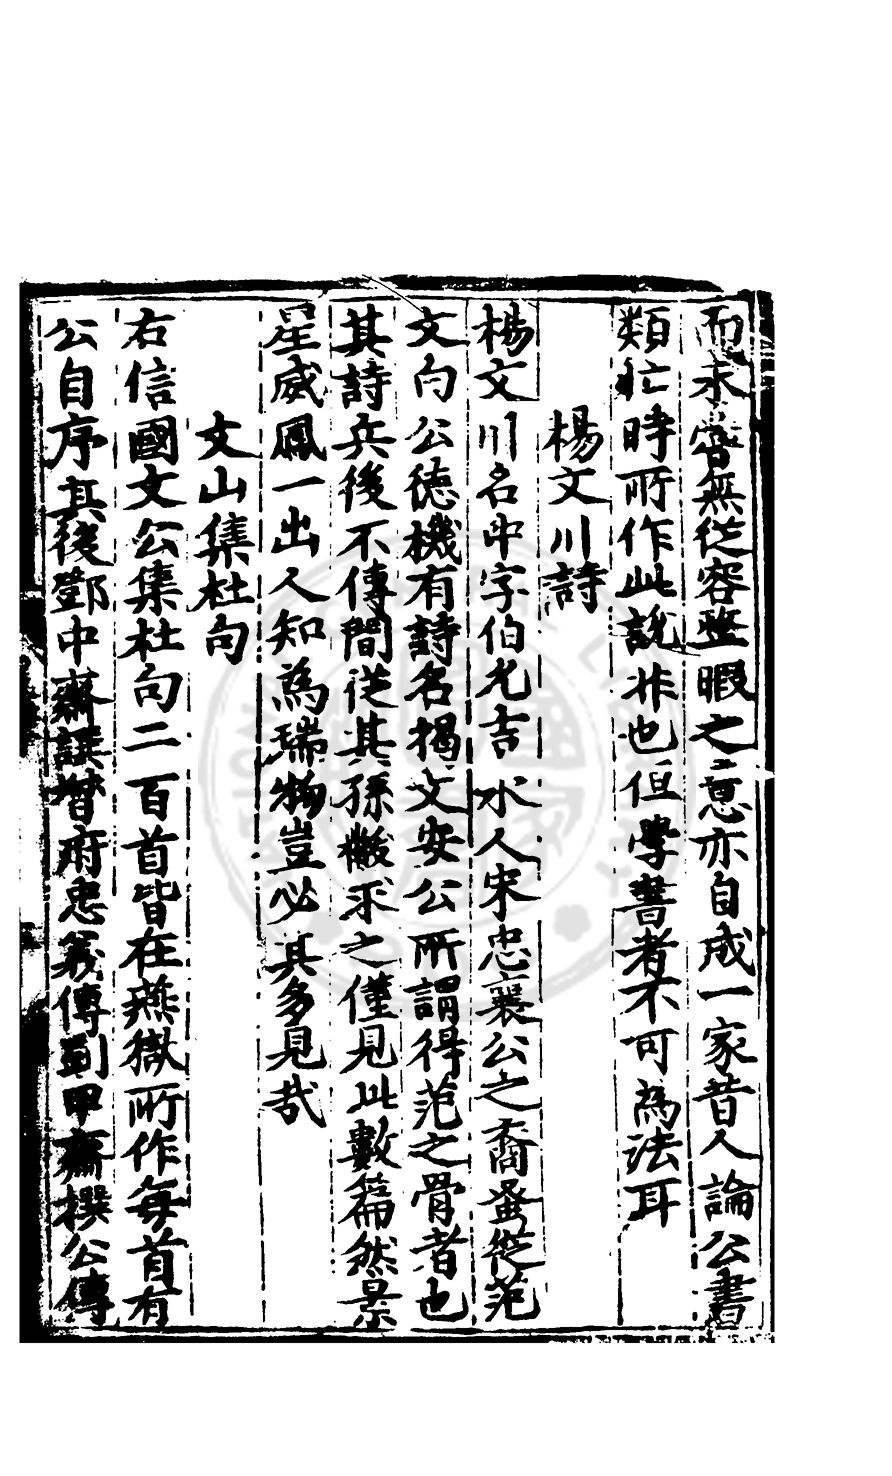 而未嘗無從容整暇之意亦自成一家昔人論公書
類忙時所作此說非也但學書者不可為法耳
楊文川詩
楊文川名中字伯允吉水人宋忠襄公之裔蚤從范
文白公德機有詩名揭文安公所謂得范之骨者也
其詩兵後不傳間從其孫徵求之僅見此數篇然景
星威鳳一出人知為瑞物豈必其多見哉
文山集杜句
右信國文公集杜句二百首皆在燕獄所作每首有
公自序其後鄧中齋譔督府忠義傳劉甲齋撰公傳